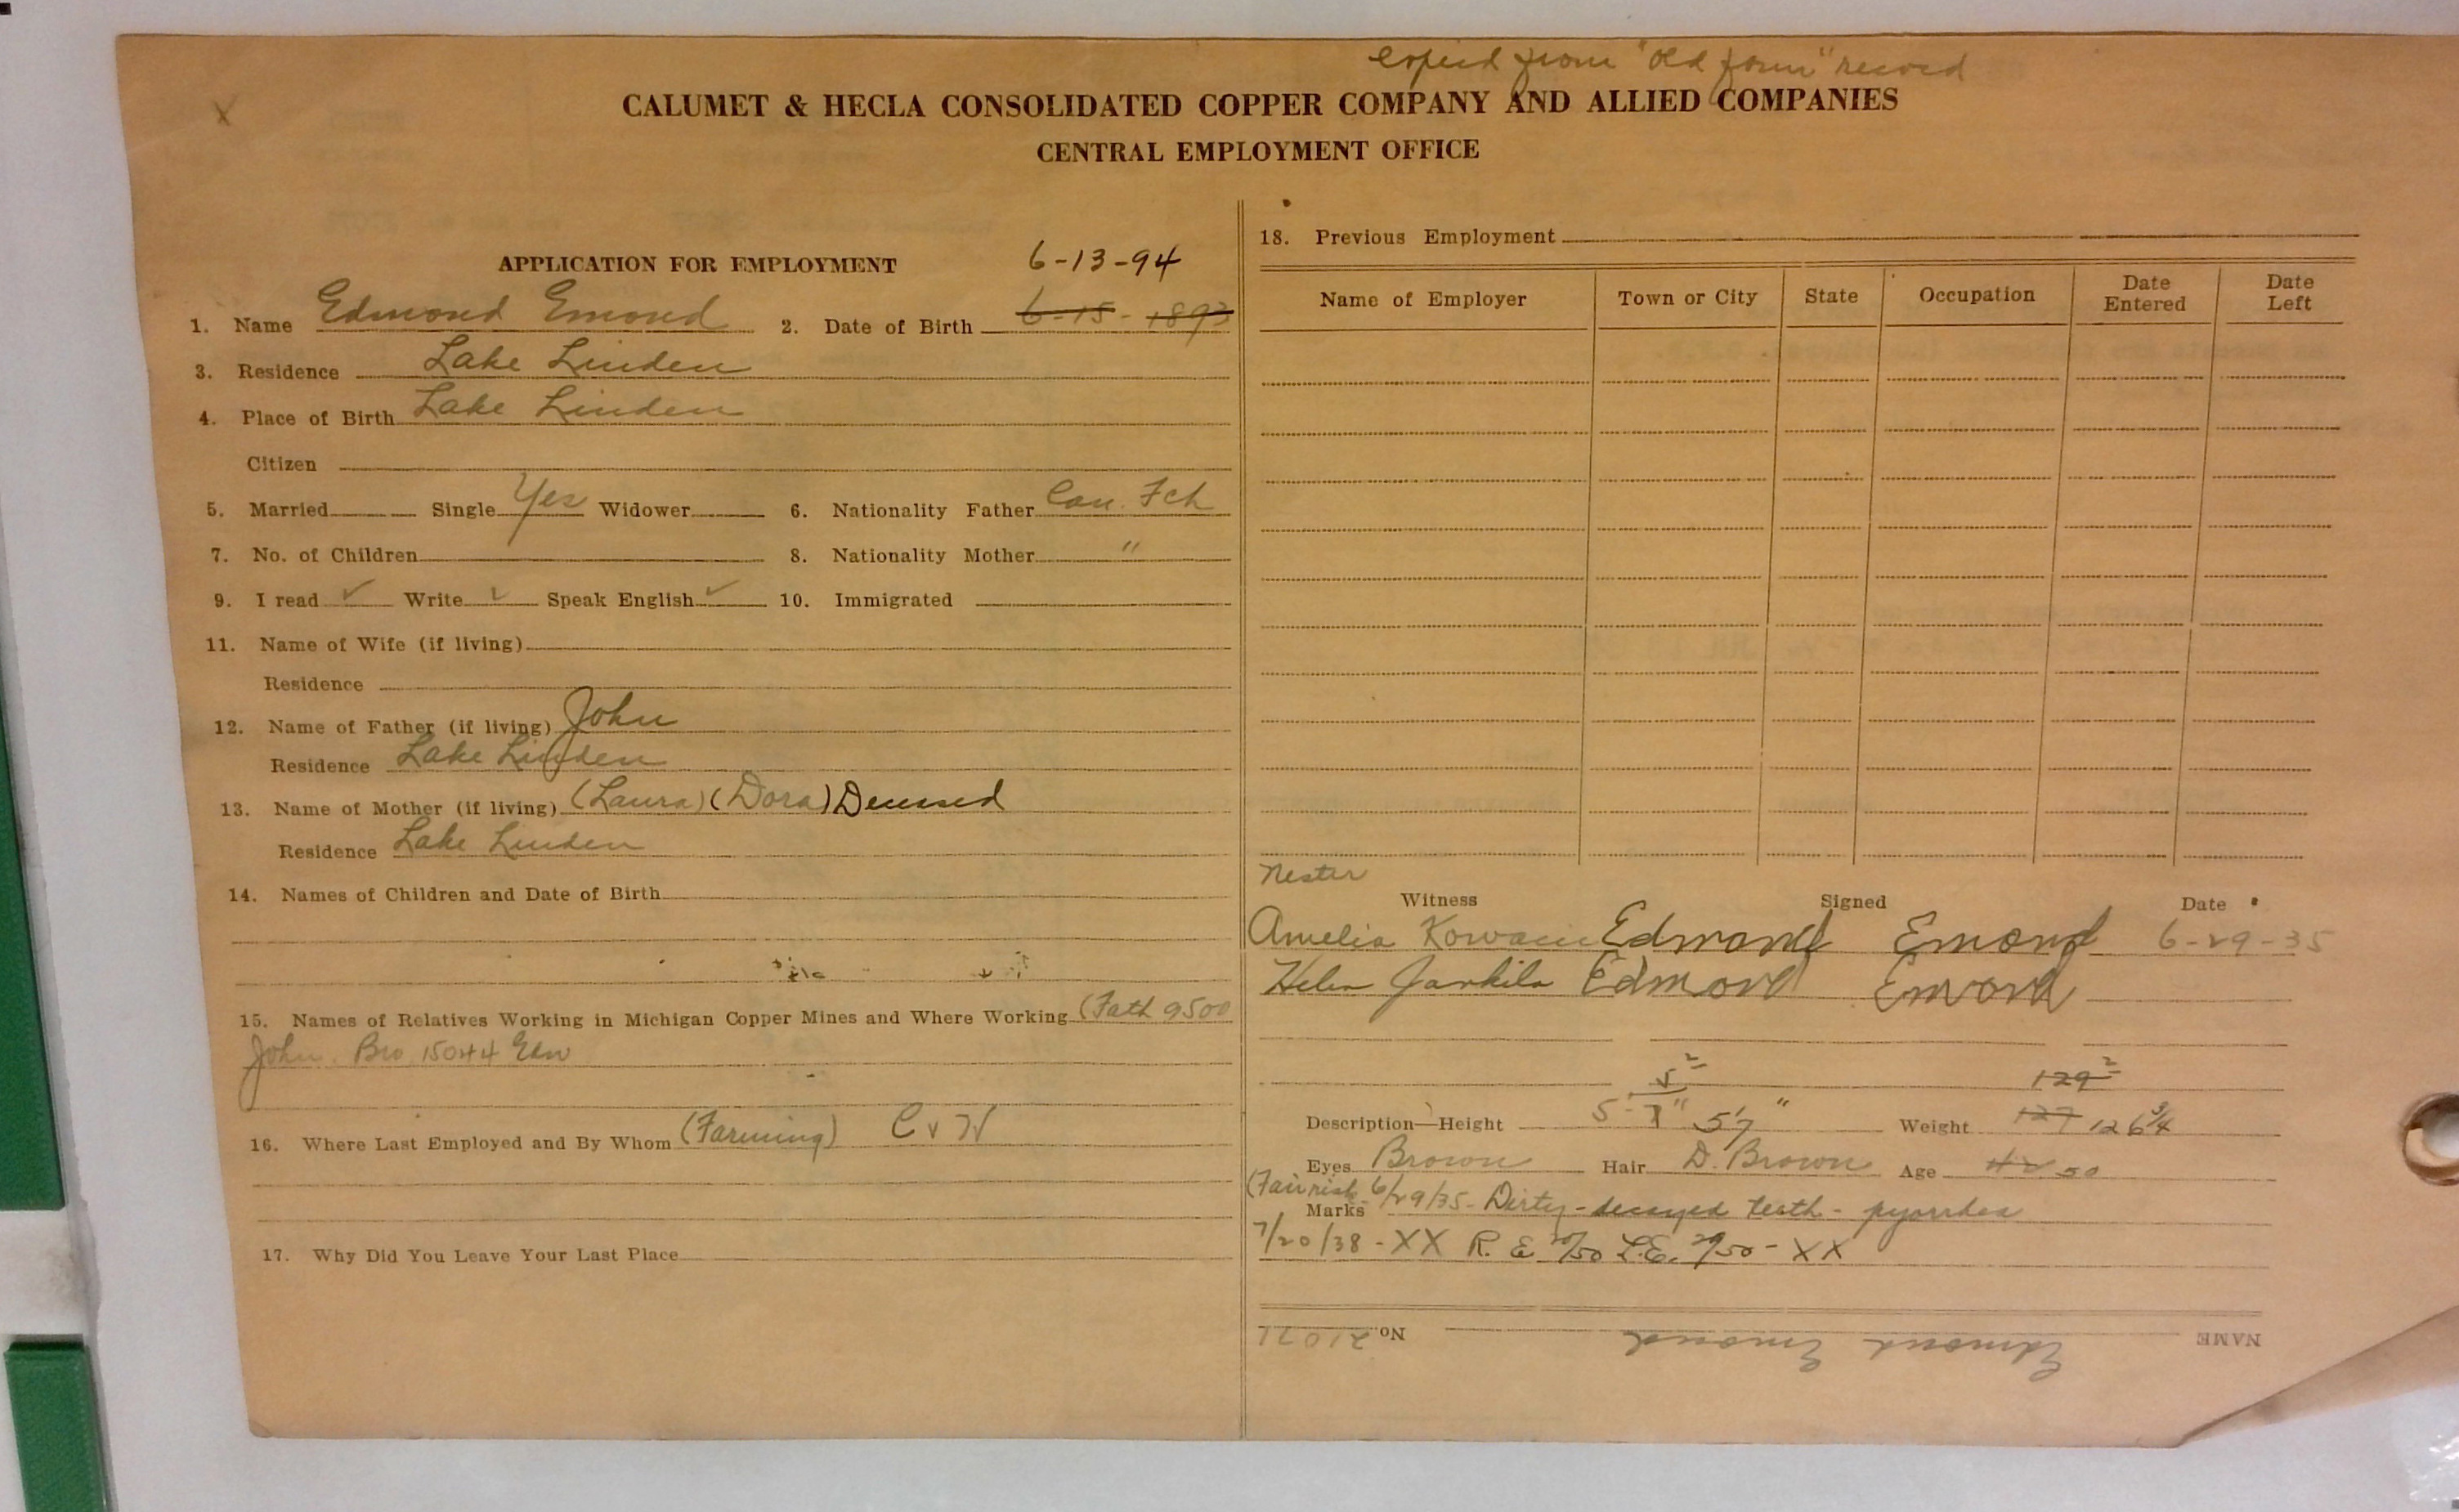 copied from "old form" record
CALUMET & HECLA CONSOLIDATED COPPER COMPANY AND ALLIED COMPANIES
CENTRAL EMPLOYMENT OFFICE
X
APPLICATION FOR EMPLOYMENT
6-13-94
1. Name Edmond Emond 2. Date of Birth 6-15-1893
3. Residence Lake Linden
4. Place of Birth Lake Linden
Citizen
5. Married Single Yes Widower 6. Nationality Father Can. Fch
7. No. of Children 8. Nationality Mother "
9. I read ✓ Write ✓ Speak English ✓ 10. Immigrated
11. Name of Wife (if living)
Residence
12. Name of Father (if living) John
Residence Lake Linden
13. Name of Mother (if living) (Laura) (Dora) Deceased
Residence Lake Linden
14. Names of Children and Date of Birth
15. Names of Relatives Working in Michigan Copper Mines and Where Working (Fath 9500
John Bro 15044 Edw
16. Where Last Employed and By Whom (Farming) C & H
17. Why Did You Leave Your Last Place
18. Previous Employment
Name of Employer Town or City State Occupation Date Entered Date Left
Nester
Witness Signed Date
Amelia Edmond Emond 6-29-35
Helen Jarkila Edmond Emond
5 2 129 2
Description—Height 5-7" 5'7" Weight 127 126 3/4
Eyes Brown Hair D. Brown Age 42 50
(Fair risk 6/29/35 - Dirty - decayed teeth - pyorrhea
Marks
7/20/38 - XX R. E 20/50 L.E. 20/50 - XX
NAME Edmond Emond No. 21077